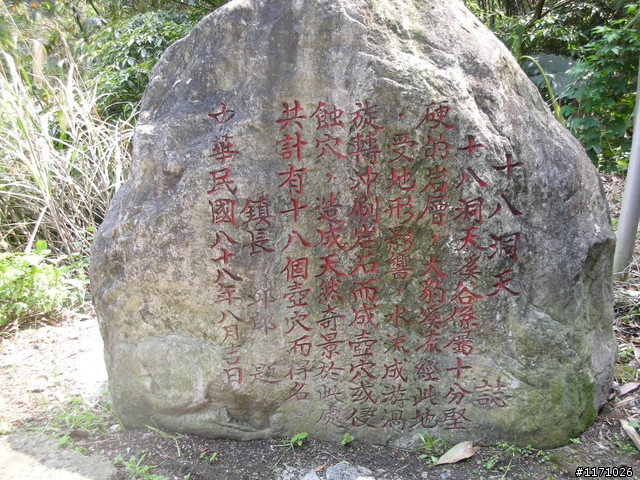 十八洞天 誌
十八洞天溪谷係屬十分堅
硬的岩層，大豹溪流經此地
，受地形影響，水流成游渦
旋轉沖刷岩石而成壺穴或侵
蝕穴，造成天然奇景於此處
共計有十八個壺穴而得名
鎮長 題
中華民國八十八年八月三日
#1171026